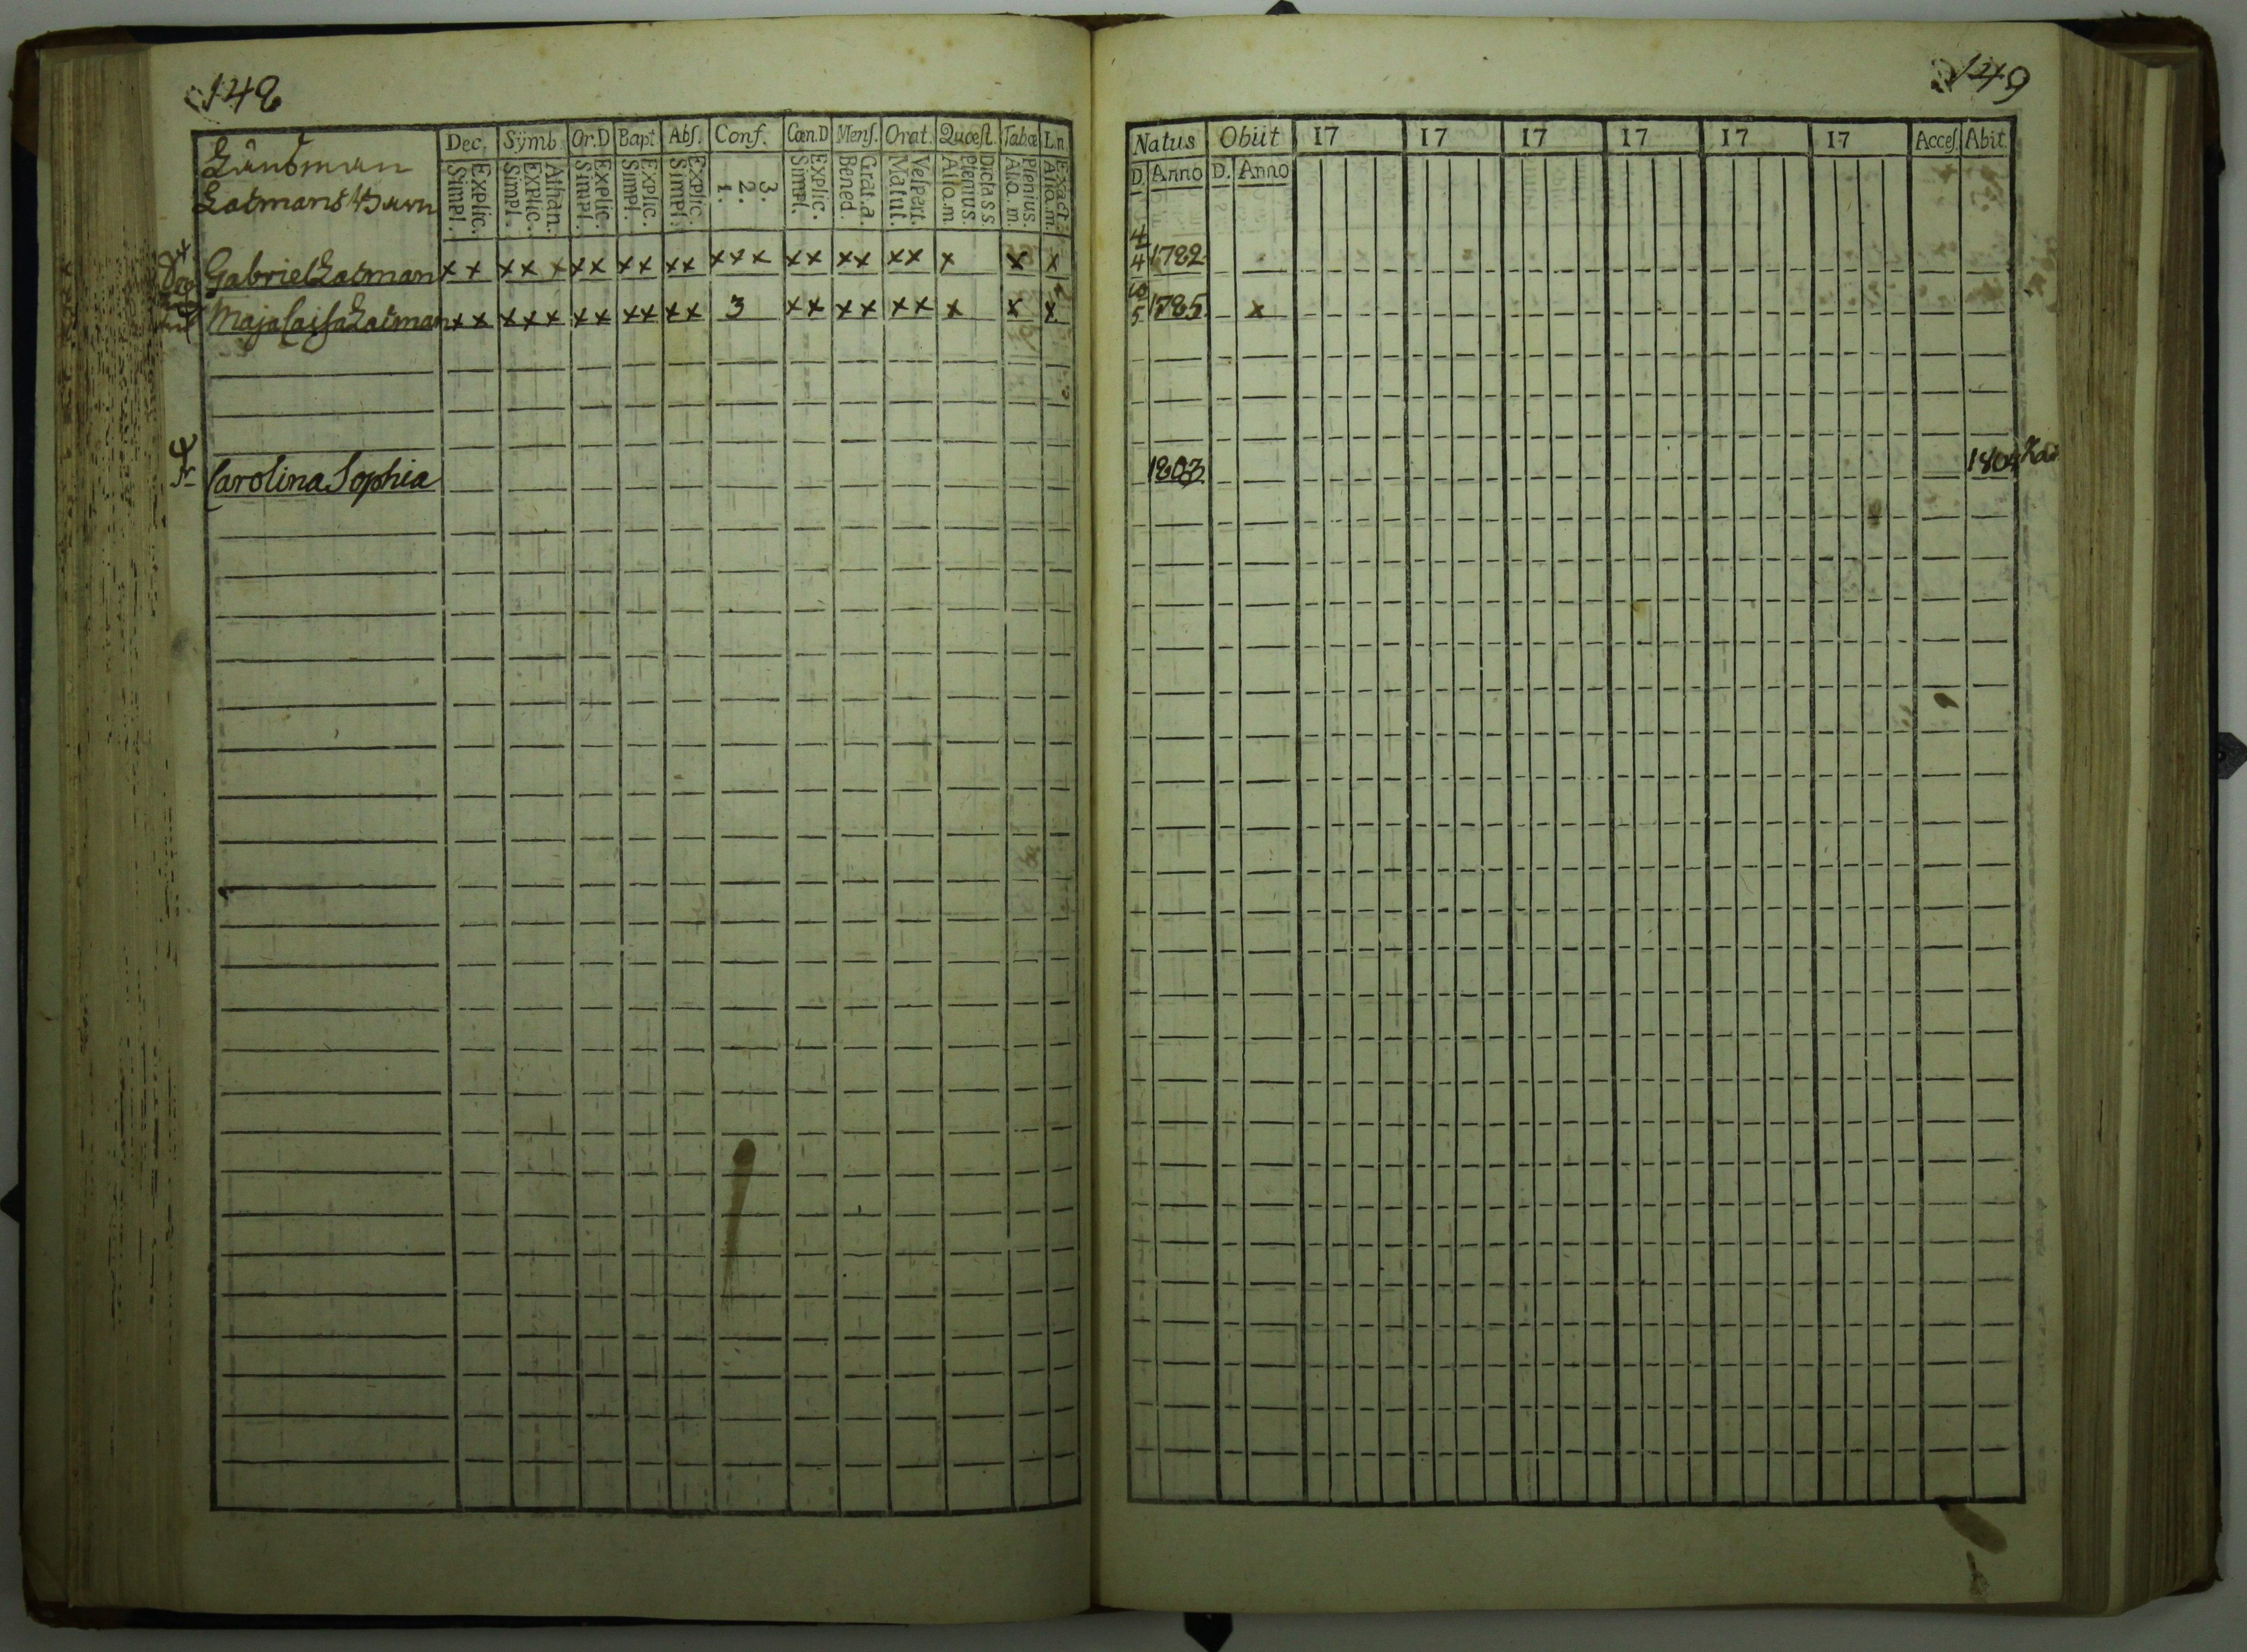 148
Dec. Sÿmb. Or.D Bapt. Abſ. Conf. Cœn.D Menſ. Orat. Quœſt. Tabœ Ln.
Simpl. Explic. Simpl. Explic. Athan. Simpl. Explic. Simpl. Explic. Simpl. Explic. 1. 2. 3. Simpl. Explic. Bened. Grat.a. Matut. Velpert. Alio.m. Plenius. Dicta s s. Alio.m. Plenius. Alio.m. Exact.
Gabriel Latman x x x x x x x x x x x x x x x x x x x x x x x
Maja Caisa Latman x x x x x x x x x x x 3 x x x x x x x x x
Carolina Sophia
149
Natus Obiit 17 17 17 17 17 17 Acceſ. Abit.
D. Anno D. Anno
4 4 1782
10 5 1785 x
1803 1804